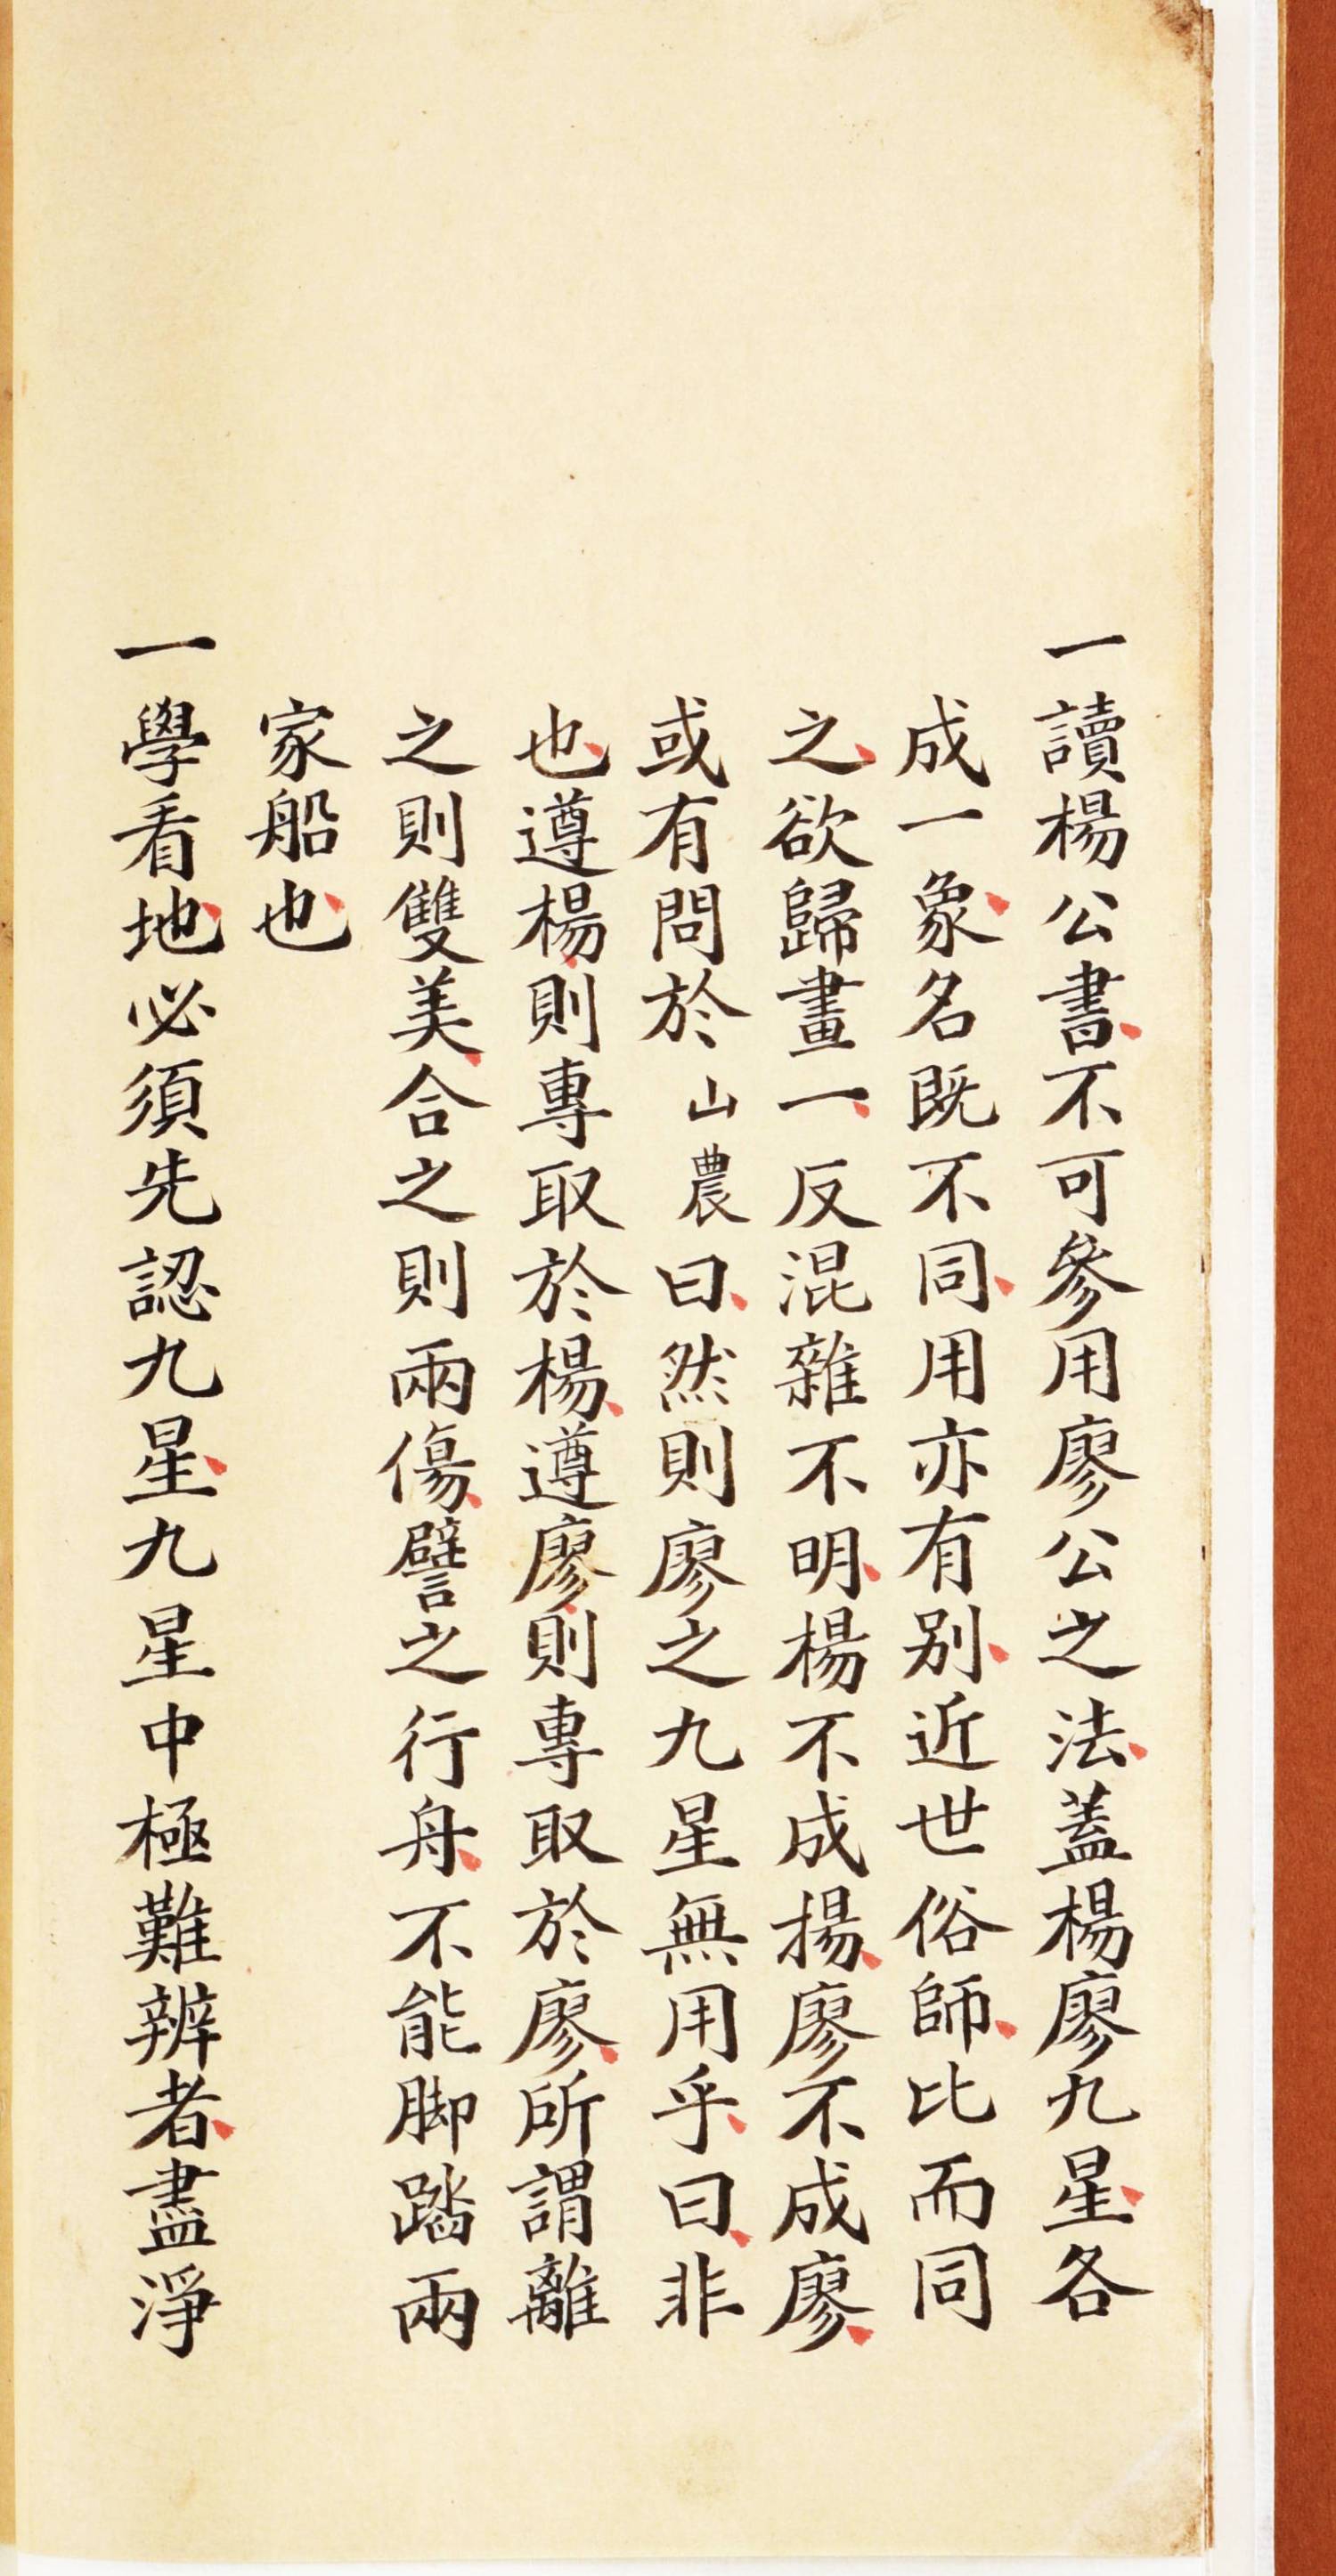 一讀楊公書、不可參用廖公之法、蓋楊廖九星、各
成一象、名既不同、用亦有别、近世俗師、比而同
之、欲歸畫一、反混雜不明、楊不成揚、廖不成廖、
或有問於山農曰、然則廖之九星無用乎、曰、非
也、遵楊、則專取於楊、遵廖、則專取於廖、所謂離
之則雙美、合之則兩傷、譬之行舟、不能脚踏兩
家船也、
一學看地、必須先認九星、九星中極難辨者、盡淨